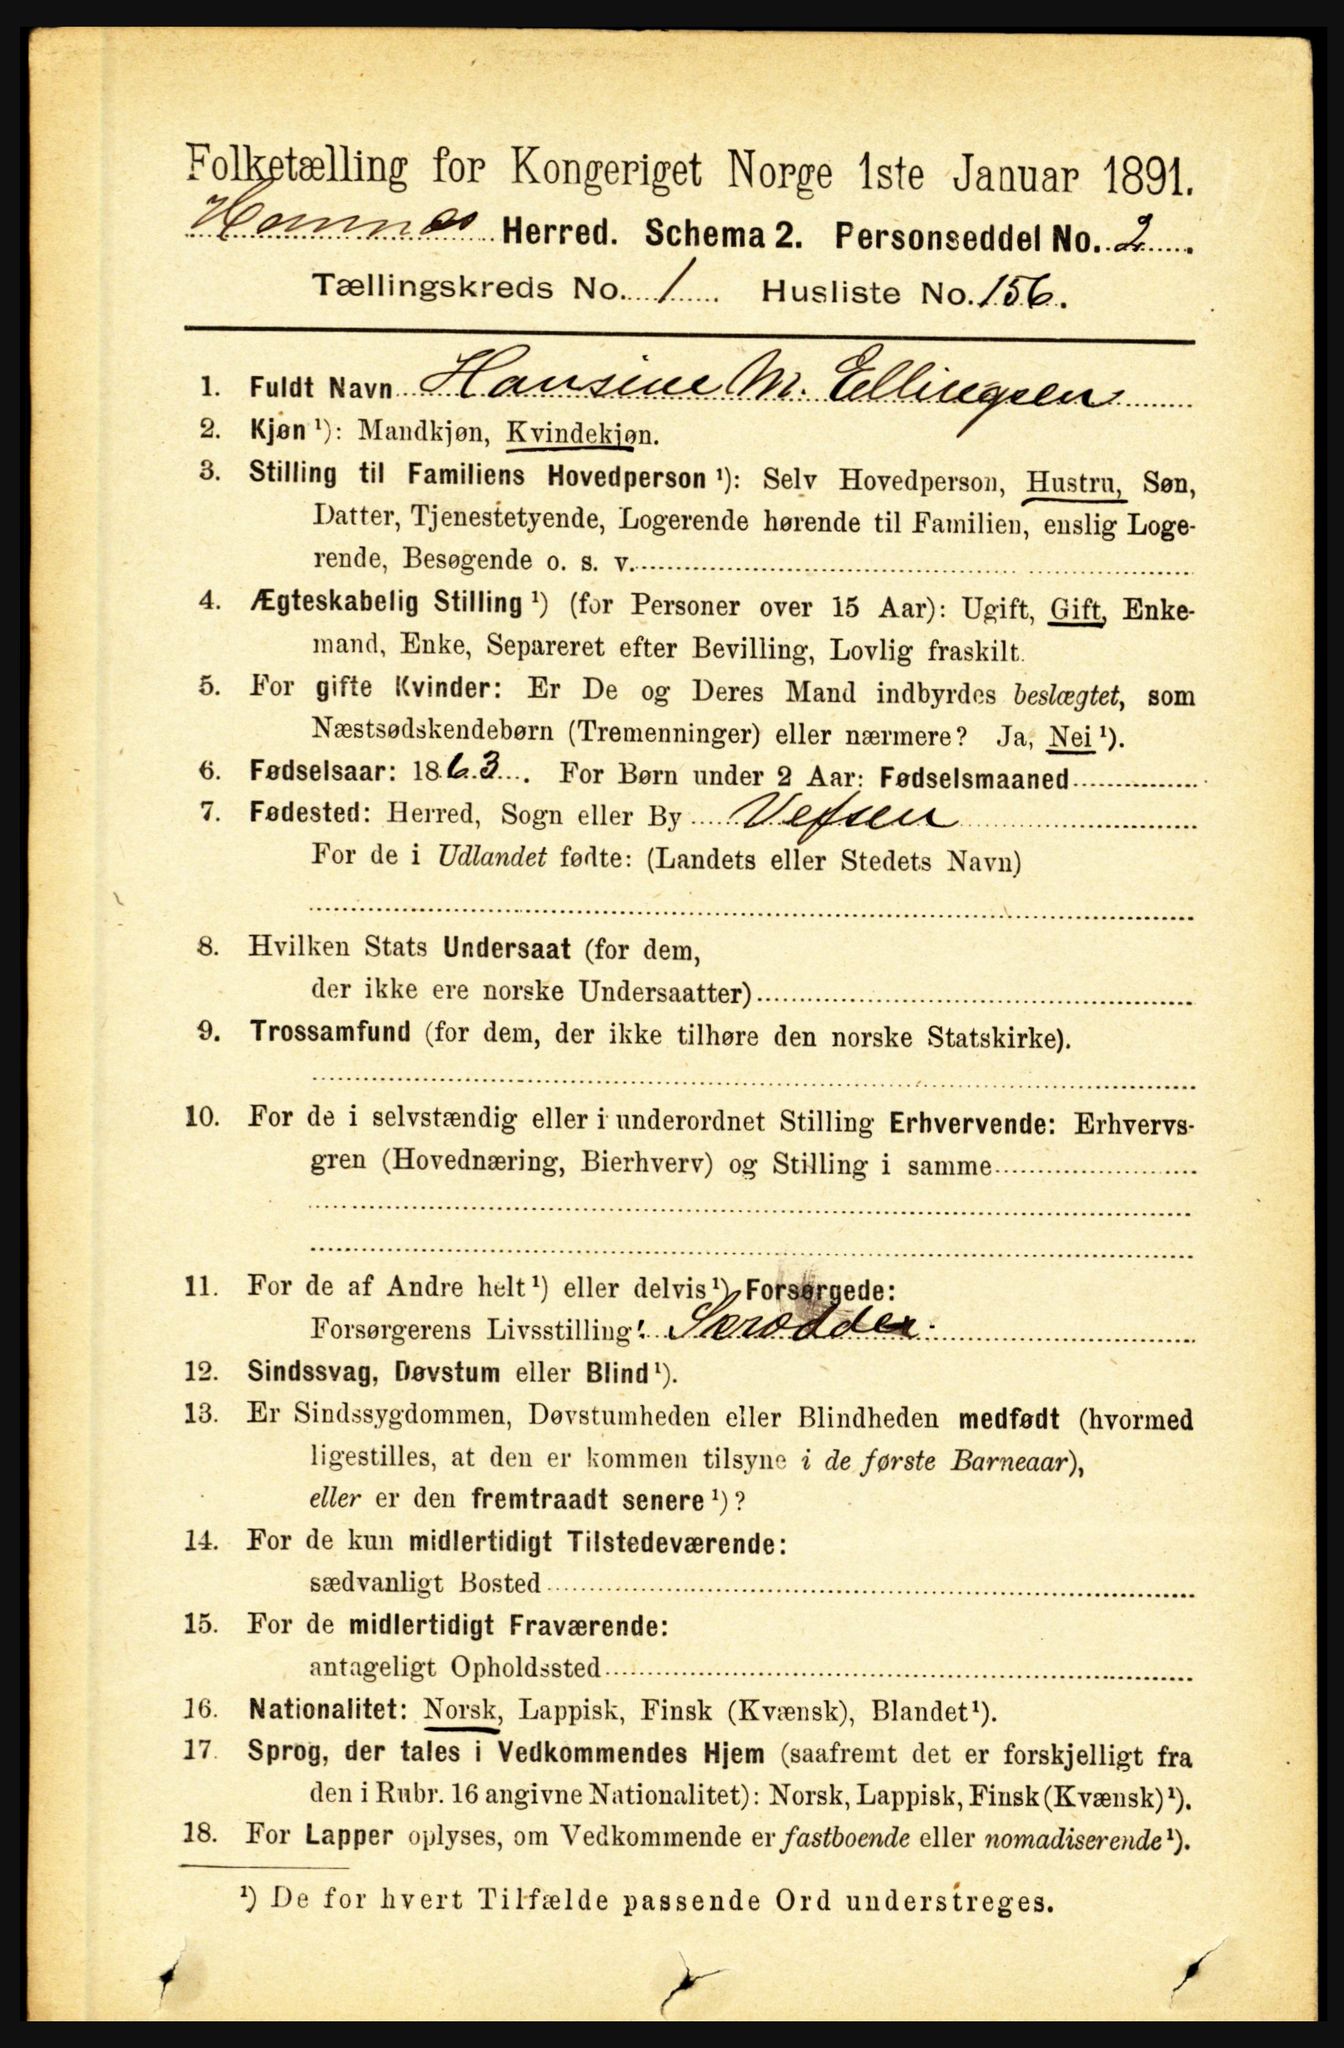 Folketælling for Kongeriget Norge 1ste Januar 1891.
Hemnes Herred. Schema 2. Personseddel No. 2.
Tællingskreds No. 1 Husliste No. 156.
1. Fuldt Navn Hansine M. Ellingsen
2. Kjøn ¹): Mandkjøn, Kvindekjøn.
3. Stilling til Familiens Hovedperson ¹): Selv Hovedperson, Hustru, Søn,
Datter, Tjenestetyende, Logerende hørende til Familien, enslig Loge-
rende, Besøgende o. s. v.
4. Ægteskabelig Stilling ¹) (for Personer over 15 Aar): Ugift, Gift, Enke-
mand, Enke, Separeret efter Bevilling, Lovlig fraskilt.
5. For gifte Kvinder: Er De og Deres Mand indbyrdes beslægtet, som
Næstsødskendebørn (Tremenninger) eller nærmere? Ja, Nei ¹).
6. Fødselsaar: 1863. For Børn under 2 Aar: Fødselsmaaned
7. Fødested: Herred, Sogn eller By Vefsen
For de i Udlandet fødte: (Landets eller Stedets Navn)
8. Hvilken Stats Undersaat (for dem,
der ikke ere norske Undersaatter)
9. Trossamfund (for dem, der ikke tilhøre den norske Statskirke).
10. For de i selvstændig eller i underordnet Stilling Erhvervende: Erhvervs-
gren (Hovednæring, Bierhverv) og Stilling i samme
11. For de af Andre helt ¹) eller delvis ¹) Forsørgede:
Forsørgerens Livsstilling: Skrædder.
12. Sindssvag, Døvstum eller Blind ¹).
13. Er Sindssygdommen, Døvstumheden eller Blindheden medfødt (hvormed
ligestilles, at den er kommen tilsyne i de første Barneaar),
eller er den fremtraadt senere ¹)?
14. For de kun midlertidigt Tilstedeværende:
sædvanligt Bosted
15. For de midlertidigt Fraværende:
antageligt Opholdssted
16. Nationalitet: Norsk, Lappisk, Finsk (Kvænsk), Blandet ¹).
17. Sprog, der tales i Vedkommendes Hjem (saafremt det er forskjelligt fra
den i Rubr. 16 angivne Nationalitet): Norsk, Lappisk, Finsk (Kvænsk) ¹).
18. For Lapper oplyses, om Vedkommende er fastboende eller nomadiserende ¹).
¹) De for hvert Tilfælde passende Ord understreges.